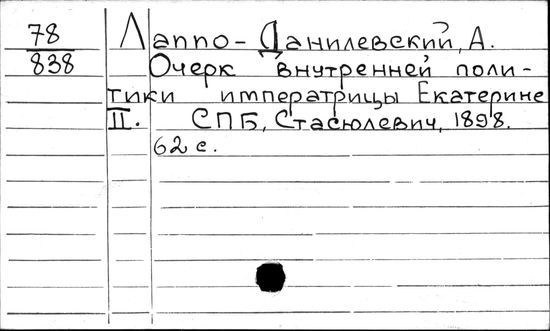 78
838
Лаппо-Данилевский, А.
Очерк внутренней поли-
тики императрицы Екатерине
II. СПБ, Стасюлевич, 1898.
62 с.